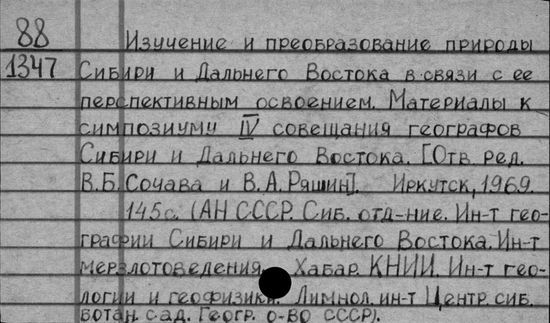 88
1347
Изучение и преобразование природы
Сибири и Дальнего Востока в связи с ее
перспективным освоением. Материалы к
симпозиуму IV совещания географов
Сибири и Дальнего Востока. [Отв. ред.
В.Б. Сочава и В.А. Ряшин]. Иркутск, 1969.
145с. (АН СССР. Сиб. отд-ние. Ин-т гео-
графии Сибири и Дальнего Востока. Ин-т
мерзлотоведения. Хабар. КНИИ. Ин-т гео-
логии и геофизики. Лимнол. ин-т Центр. сиб.
ботан. сад. Геогр. о-во СССР).